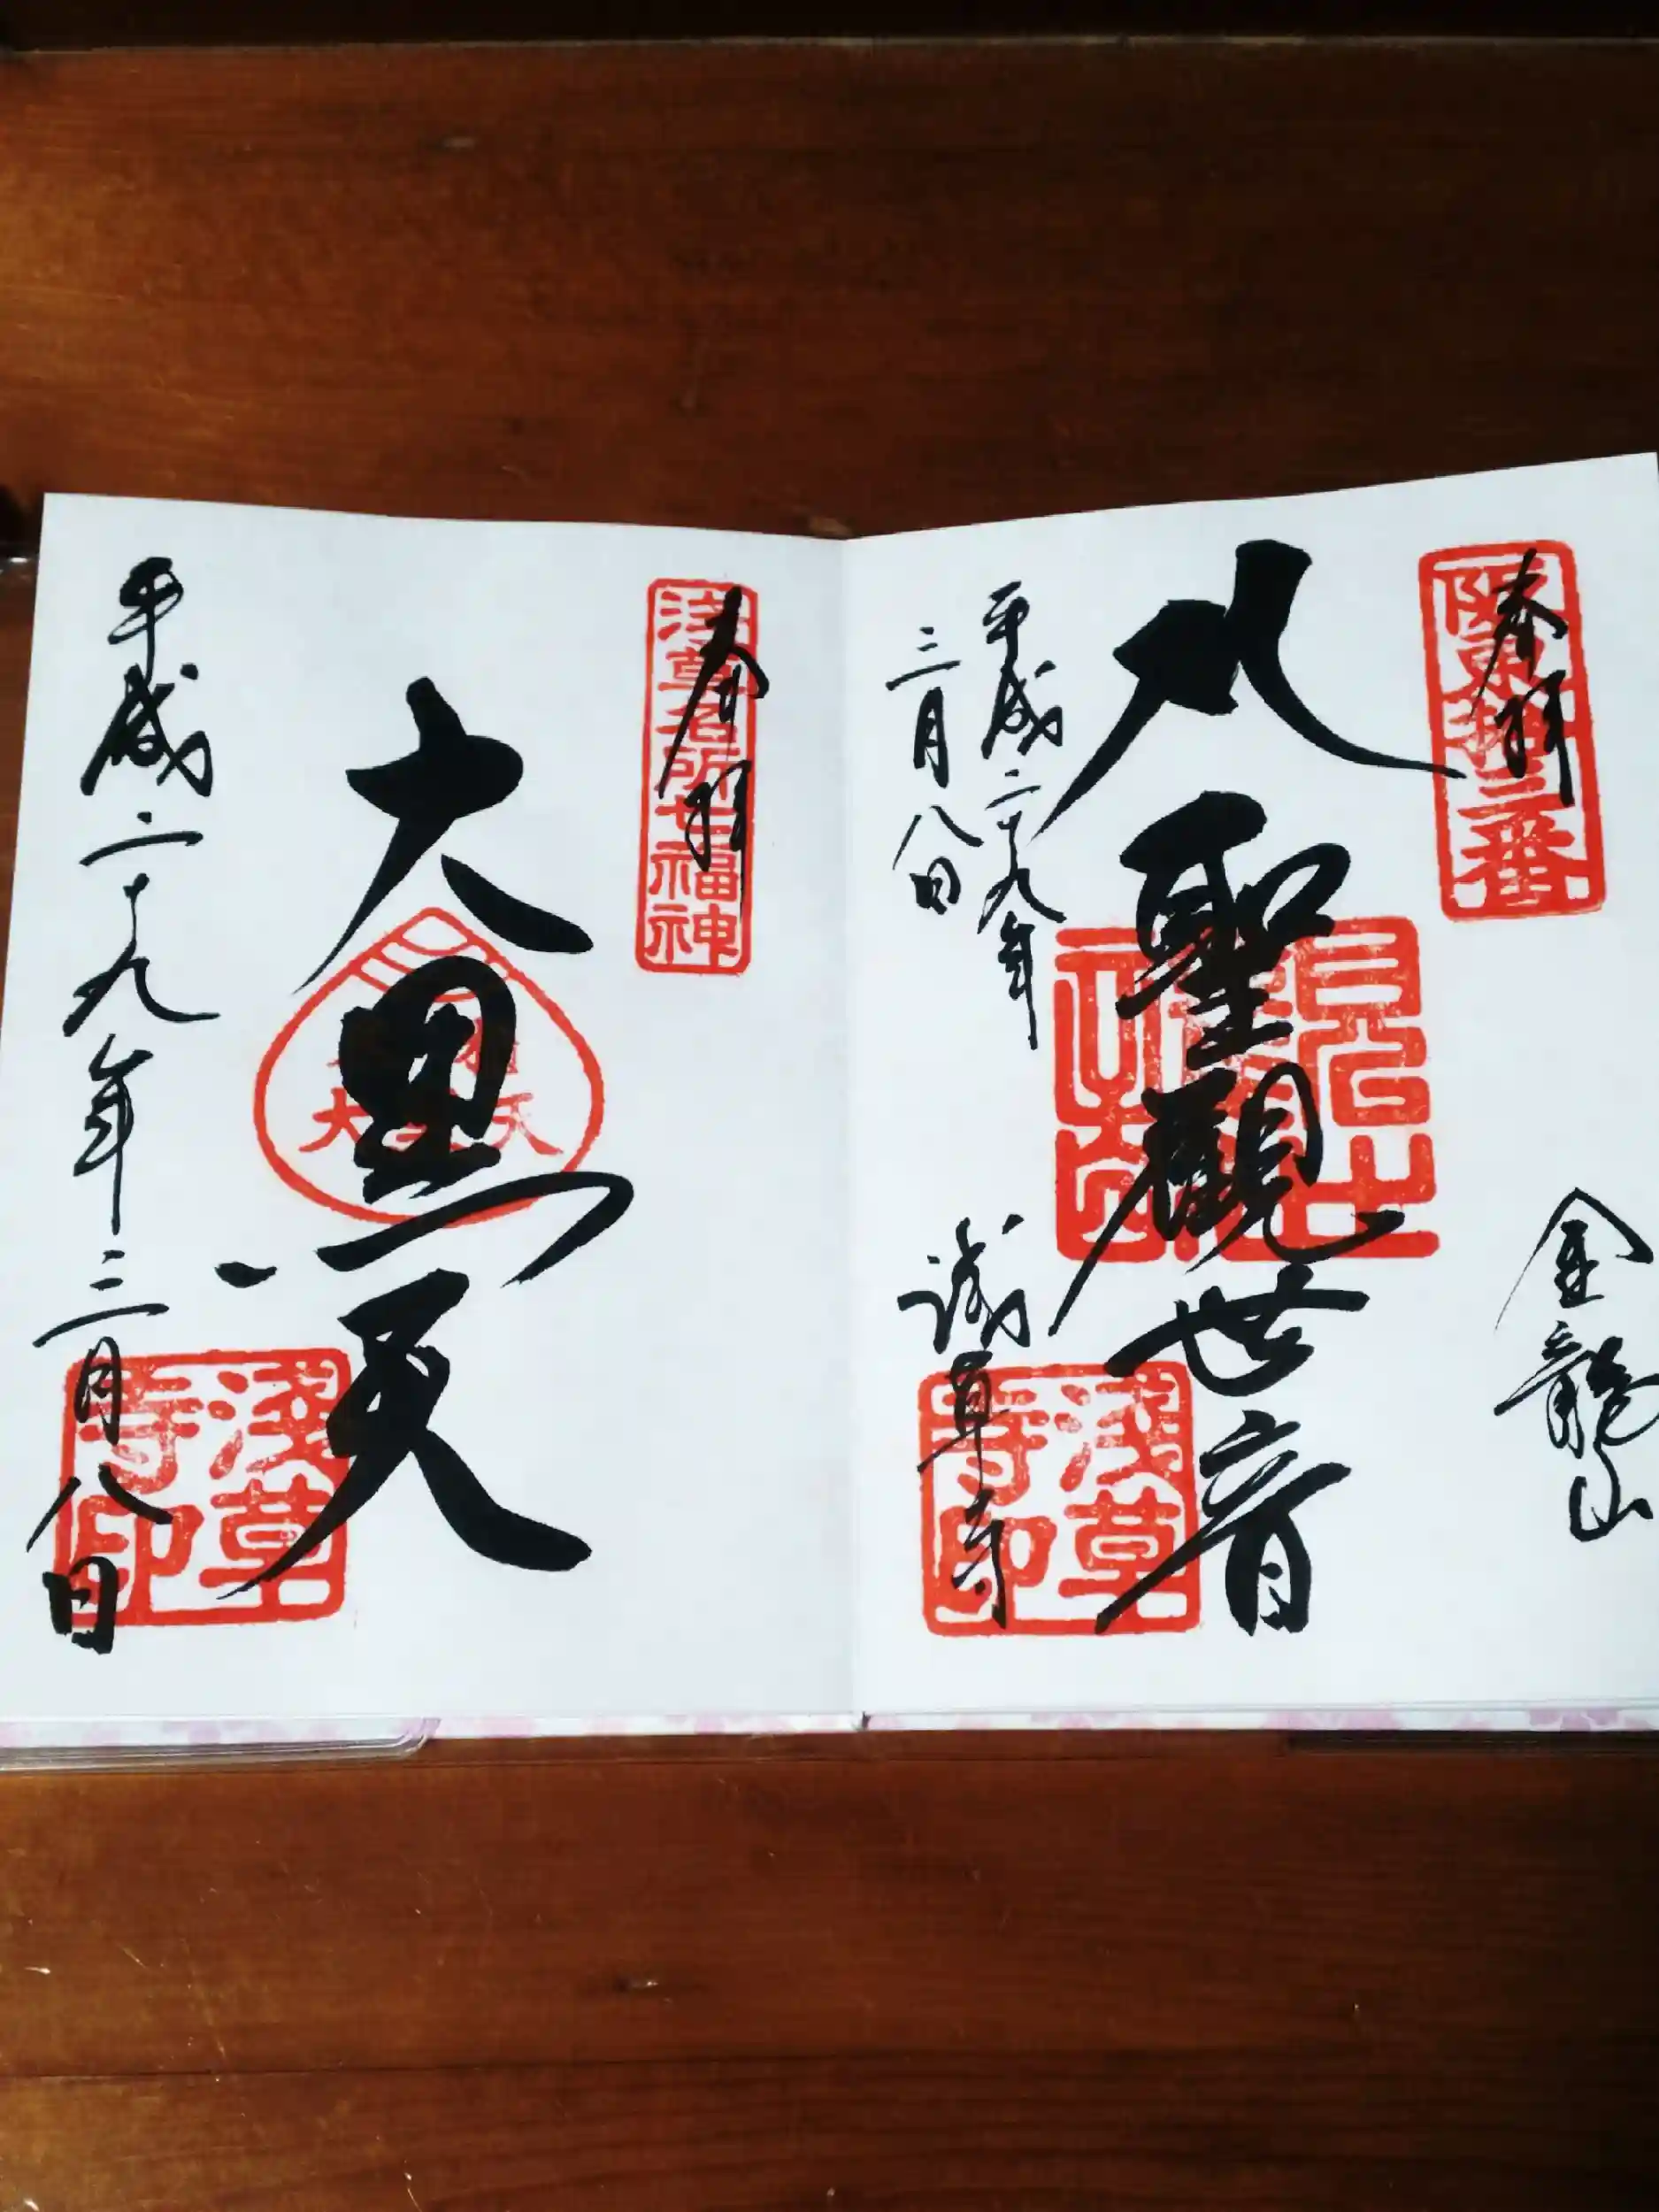 奉拝
阪東拾三番
金龍山
聖観世音
平成二十九年
三月八日
浅草寺
浅草寺印
奉拝
浅草名所七福神
大黒天
平成二十九年三月八日
浅草寺印